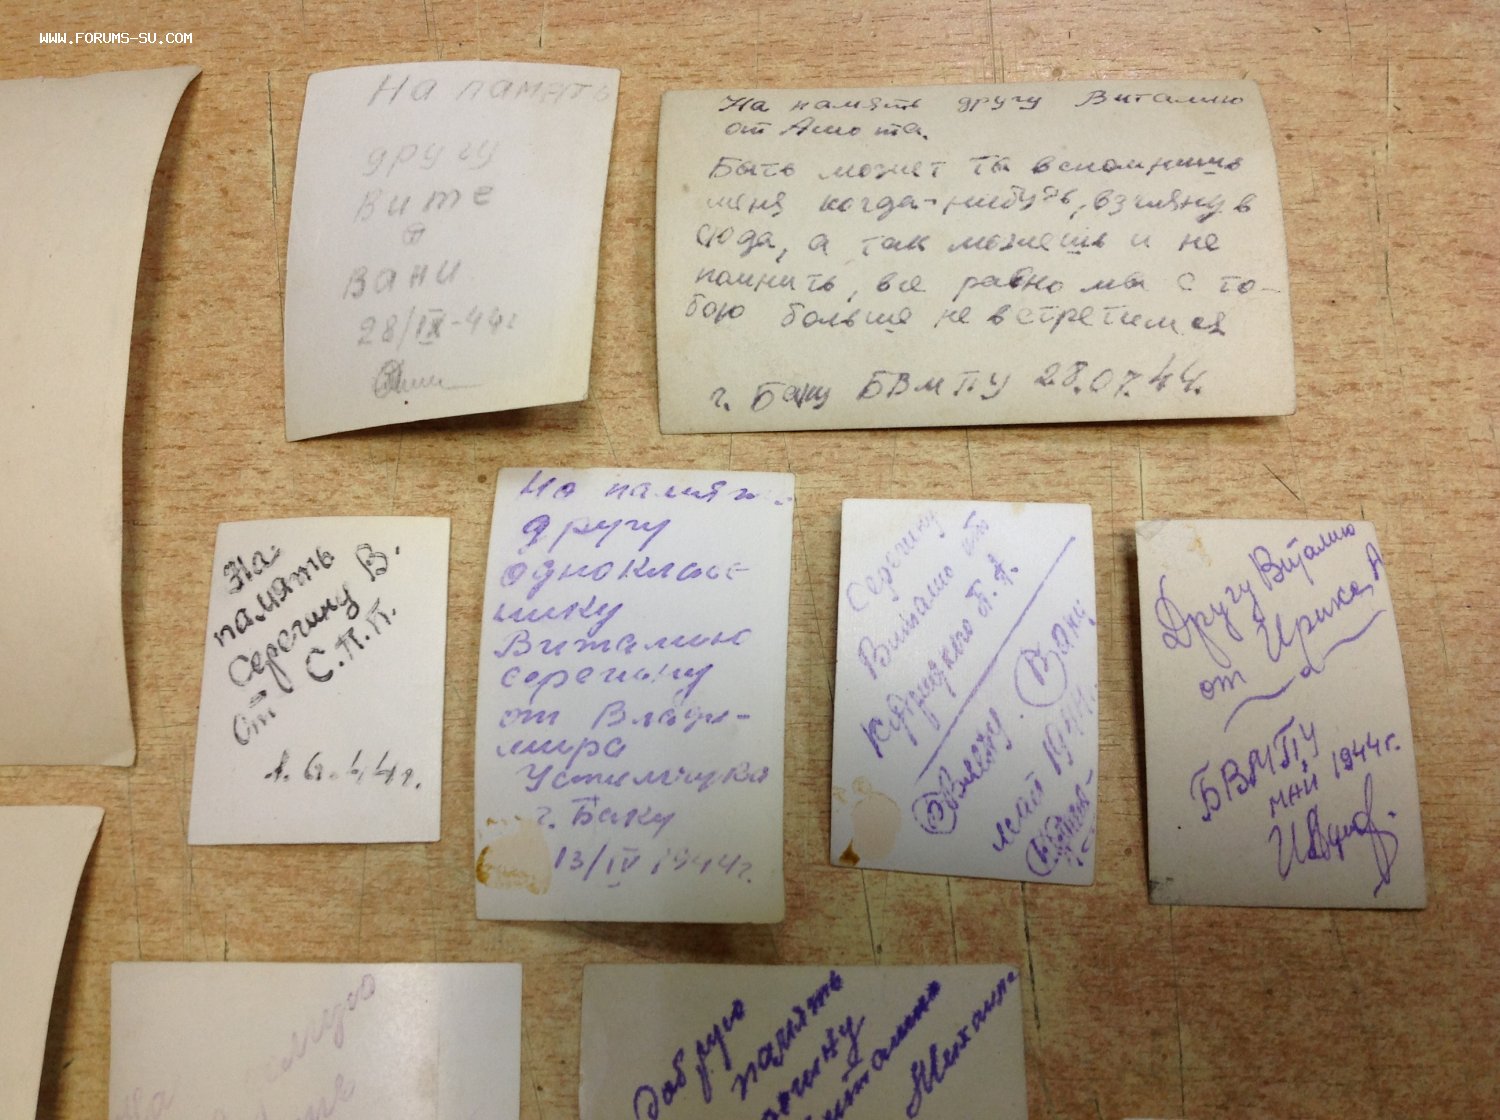 WWW.FORUMS-SU.COM
На память
другу
Вите
от
Вани
28/IX-44г
На память другу Виталию
от Ашота.
Быть может ты вспомнишь
меня когда-нибудь, взглянув
сюда, а так можешь и не
помнить, все равно мы с то-
бою больше не встретимся
г. Баку БВМПУ 28.07.44.
На
память
Серегину В.
От С.П.П.
1.6.44г.
На память
другу
однокласс-
нику
Виталию
серегину
от Влади-
мира
Устимчука
г. Баку
13/IV 1944г.
Серегину
Виталию от
П.А.
Баку
май 1944г.
Другу Виталию
от А
БВМПУ
май 1944г.
На
добрую
память